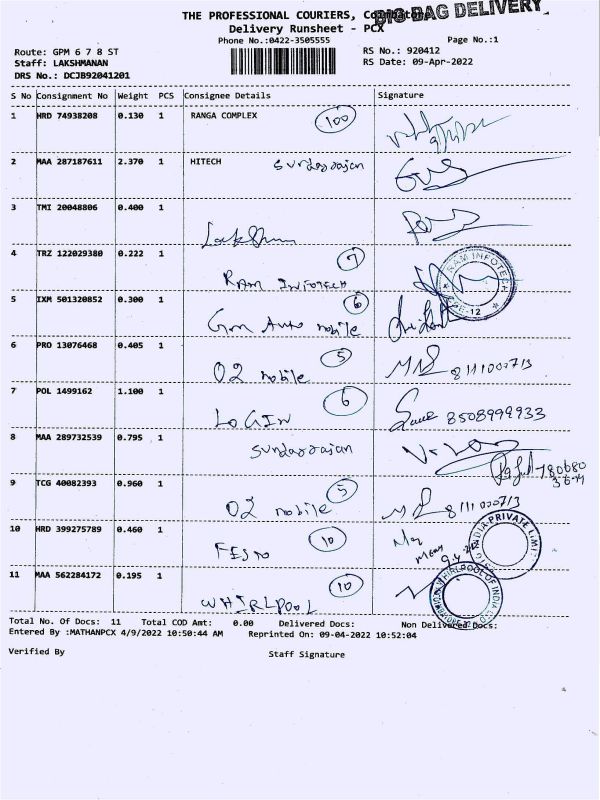 THE PROFESSIONAL COURIERS, Coimbatore
BIG BAG DELIVERY
Delivery Runsheet - PCX
Phone No.:0422-3505555 Page No.:1
Route: GPM 6 7 8 ST RS No.: 920412
Staff: LAKSHMANAN RS Date: 09-Apr-2022
DRS No.: DCJB92041201
S No Consignment No Weight PCS Consignee Details Signature
1 HRD 74938208 0.130 1 RANGA COMPLEX 100
2 MAA 287187611 2.370 1 HITECH Sundarrajan
3 TMI 20048806 0.400 1
Lakshman
4 TRZ 122029380 0.222 1 7
RAM INFOTECH
RAM INFOTECH
CBE-12
5 IXM 501320852 0.300 1 6
Gm Auto mobile
6 PRO 13076468 0.405 1 5
O2 mobile 8111000713
7 POL 1499162 1.100 1 6
LOGIN 8508999933
8 MAA 289732539 0.795 1
Sundarrajan
9 TCG 40082393 0.960 1 5
O2 mobile 8111000713
10 HRD 399275789 0.460 1 10
FESTO
INDIA PRIVATE LIMITED
11 MAA 562284172 0.195 1 10
WHIRLPOOL
WHIRLPOOL OF INDIA LTD
Total No. Of Docs: 11 Total COD Amt: 0.00 Delivered Docs: Non Delivered Docs:
Entered By :MATHANPCX 4/9/2022 10:50:44 AM Reprinted On: 09-04-2022 10:52:04
Verified By Staff Signature